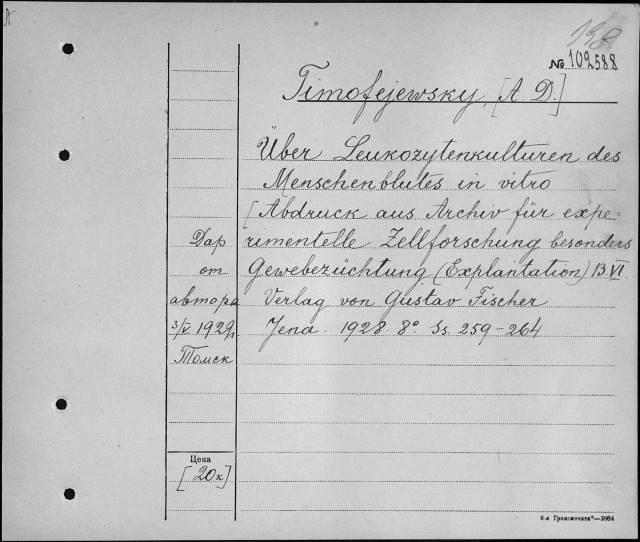 198
№ 102588
Timofejewsky, [A. D.]
Über Leukozytenkulturen des
Menschenblutes in vitro
[Abdruck aus Archiv für expe-
rimentelle Zellforschung besonders
Gewebezüchtung (Explantation) 13. VI.
Verlag von Gustav Fischer
Jena. 1928. 8° Ss. 259-264
Дар
от
автора
3/V 1929г.
Томск
Цена
[20к]